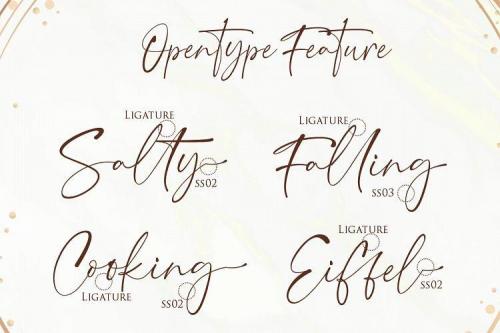 Opentype Feature
LIGATURE
Salty
SS02
LIGATURE
Falling
SS03
Cooking
LIGATURE
SS02
LIGATURE
Eiffel
SS02